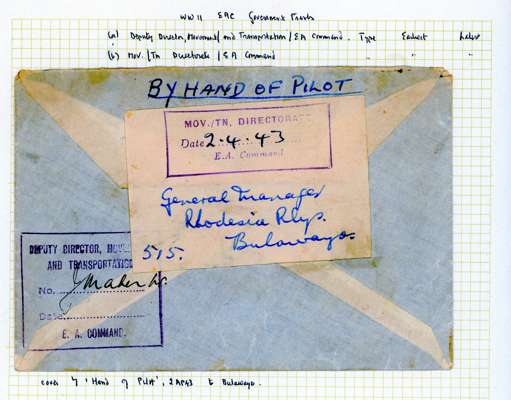 WW II EAC Government Transits
(a) Deputy Director, Movement/and Transportation/EA Command. Type Earliest Latest
(b) Mov./Tn Directorate/EA Command " "
BY HAND OF PILOT
MOV./TN. DIRECTORATE
Date 2.4.43
E.A. Command
General Manager
Rhodesia Rlys.
Bulawayo.
515.
DEPUTY DIRECTOR, MOVE
AND TRANSPORTATION
No.
Date
E. A. COMMAND.
cover by 'Hand of Pilot', 2 AP43 to Bulawayo.